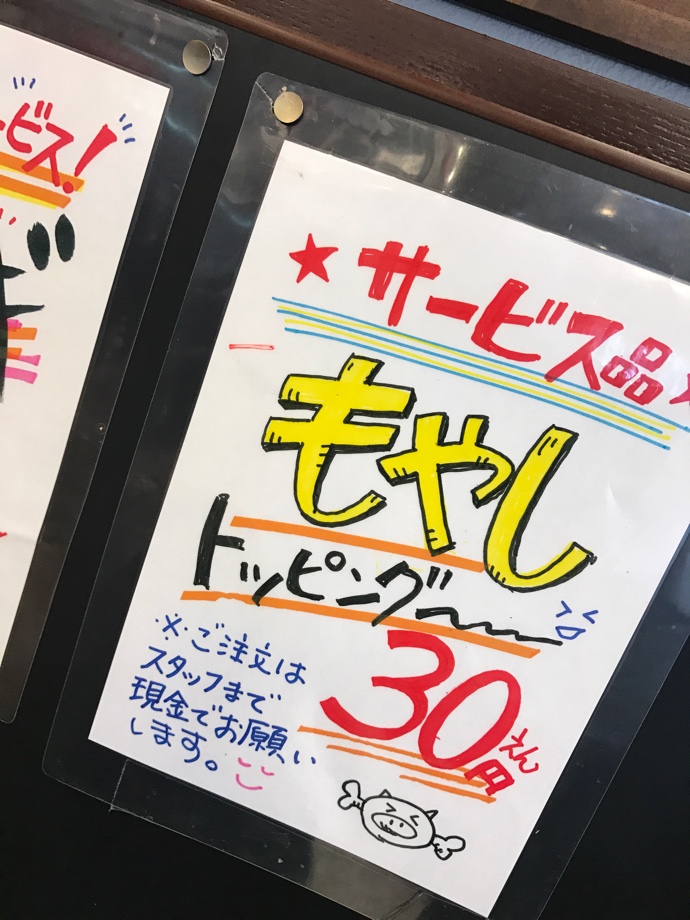 ービス!
★サービス品★
もやし
トッピング〜
30円
えん
※ご注文は
スタッフまで
現金でお願い
します。